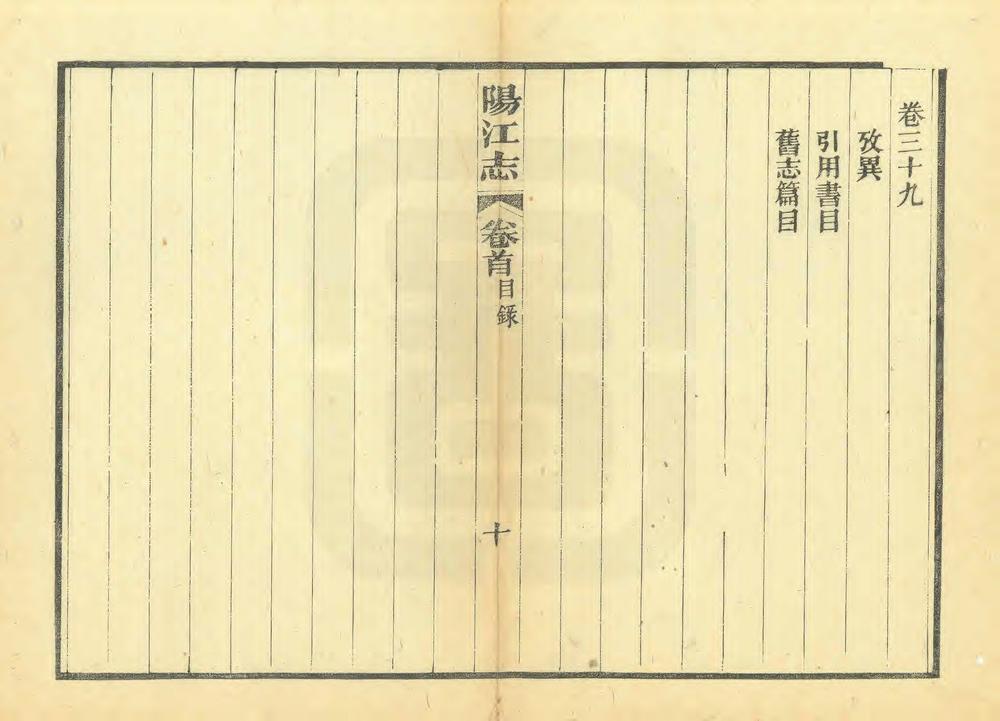 卷三十九
攷異
引用書目
舊志篇目
陽江志
卷首目錄
十